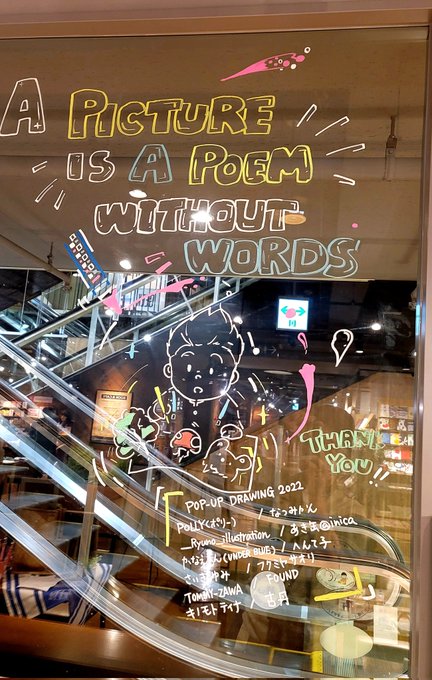 A PICTURE
IS A POEM
WITHOUT
WORDS
THANK
YOU!!
POP-UP DRAWING 2022
POLLY(ポリー) / なつみかん
Ryuno_illustration / あきま@inica
(UNDER BLUE) / へんて子
さいとうゆみ / フクミヤサオリ
TOMMY-ZAWA / FOUND
キノモトティナ / 古舟